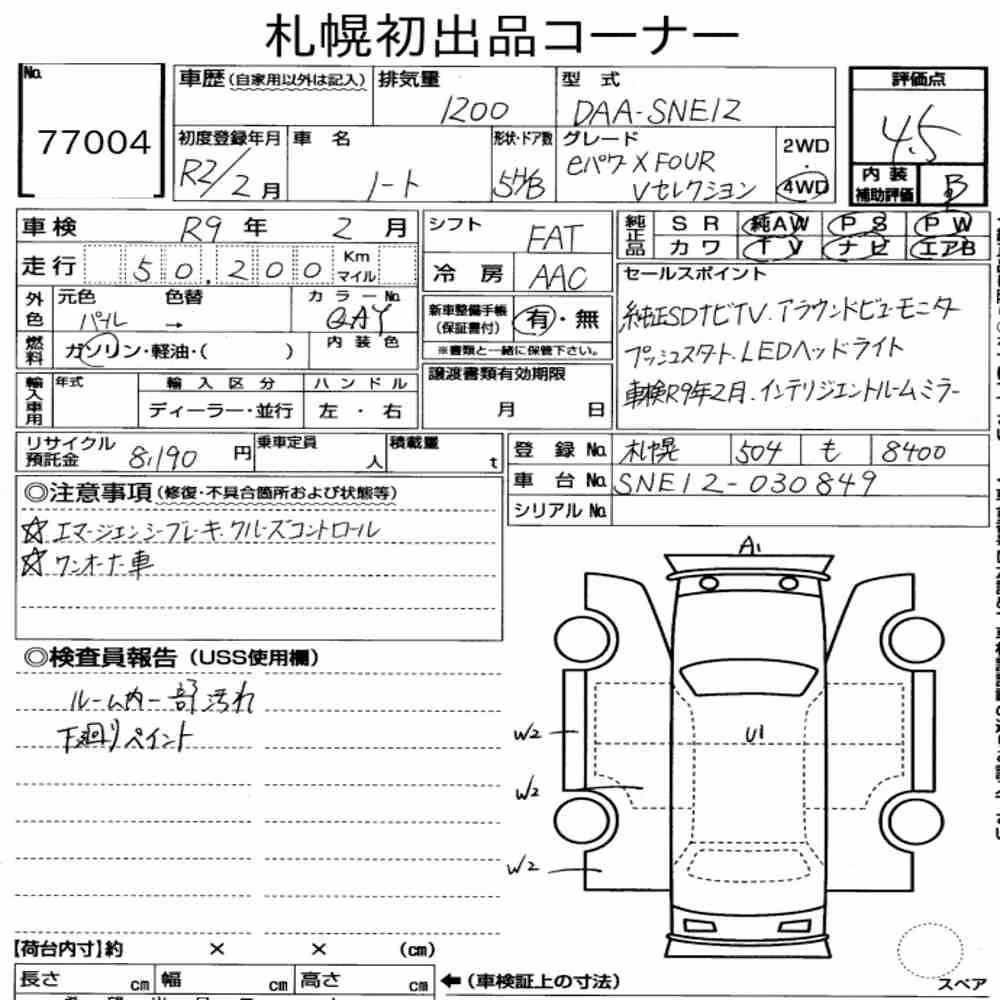 札幌初出品コーナー
No.
77004
車歴(自家用以外は記入)
排気量
1200
型式
DAA-SNE12
評価点
4.5
初度登録年月
R2/2月
車名
ノート
形状・ドア数
5H/B
グレード
eパワーX FOUR
Vセレクション
2WD
・
4WD
内装
補助評価
B
車検 R9年 2月
走行 50,200 Km
マイル
外色
元色 色替
パール →
カラーNo.
QAY
燃料
ガソリン・軽油・( )
内装色
輸入車用
年式
輸入区分
ディーラー・並行
ハンドル
左・右
シフト
FAT
冷房
AAC
新車整備手帳
(保証書付)
有・無
※書類と一緒に保管下さい。
譲渡書類有効期限
月 日
純正品
SR 純AW PS PW
カワ TV ナビ エアB
セールスポイント
純正SDナビTV.アラウンドビューモニター
プッシュスタート.LEDヘッドライト
車検R9年2月.インテリジェントルームミラー
リサイクル
預託金
8,190円
乗車定員
人
積載量
t
登録No. 札幌 504 も 8400
車台No. SNE12-030849
シリアルNo.
◎注意事項(修復・不具合箇所および状態等)
☆エマージェンシーブレーキ.クルーズコントロール
☆ワンオーナー車
◎検査員報告(USS使用欄)
ルーム内一部汚れ
下廻りペイント
A1
U1
W2
W2
W2
【荷台内寸】約 × × (cm)
長さ cm
幅 cm
高さ cm
←(車検証上の寸法)
スペア